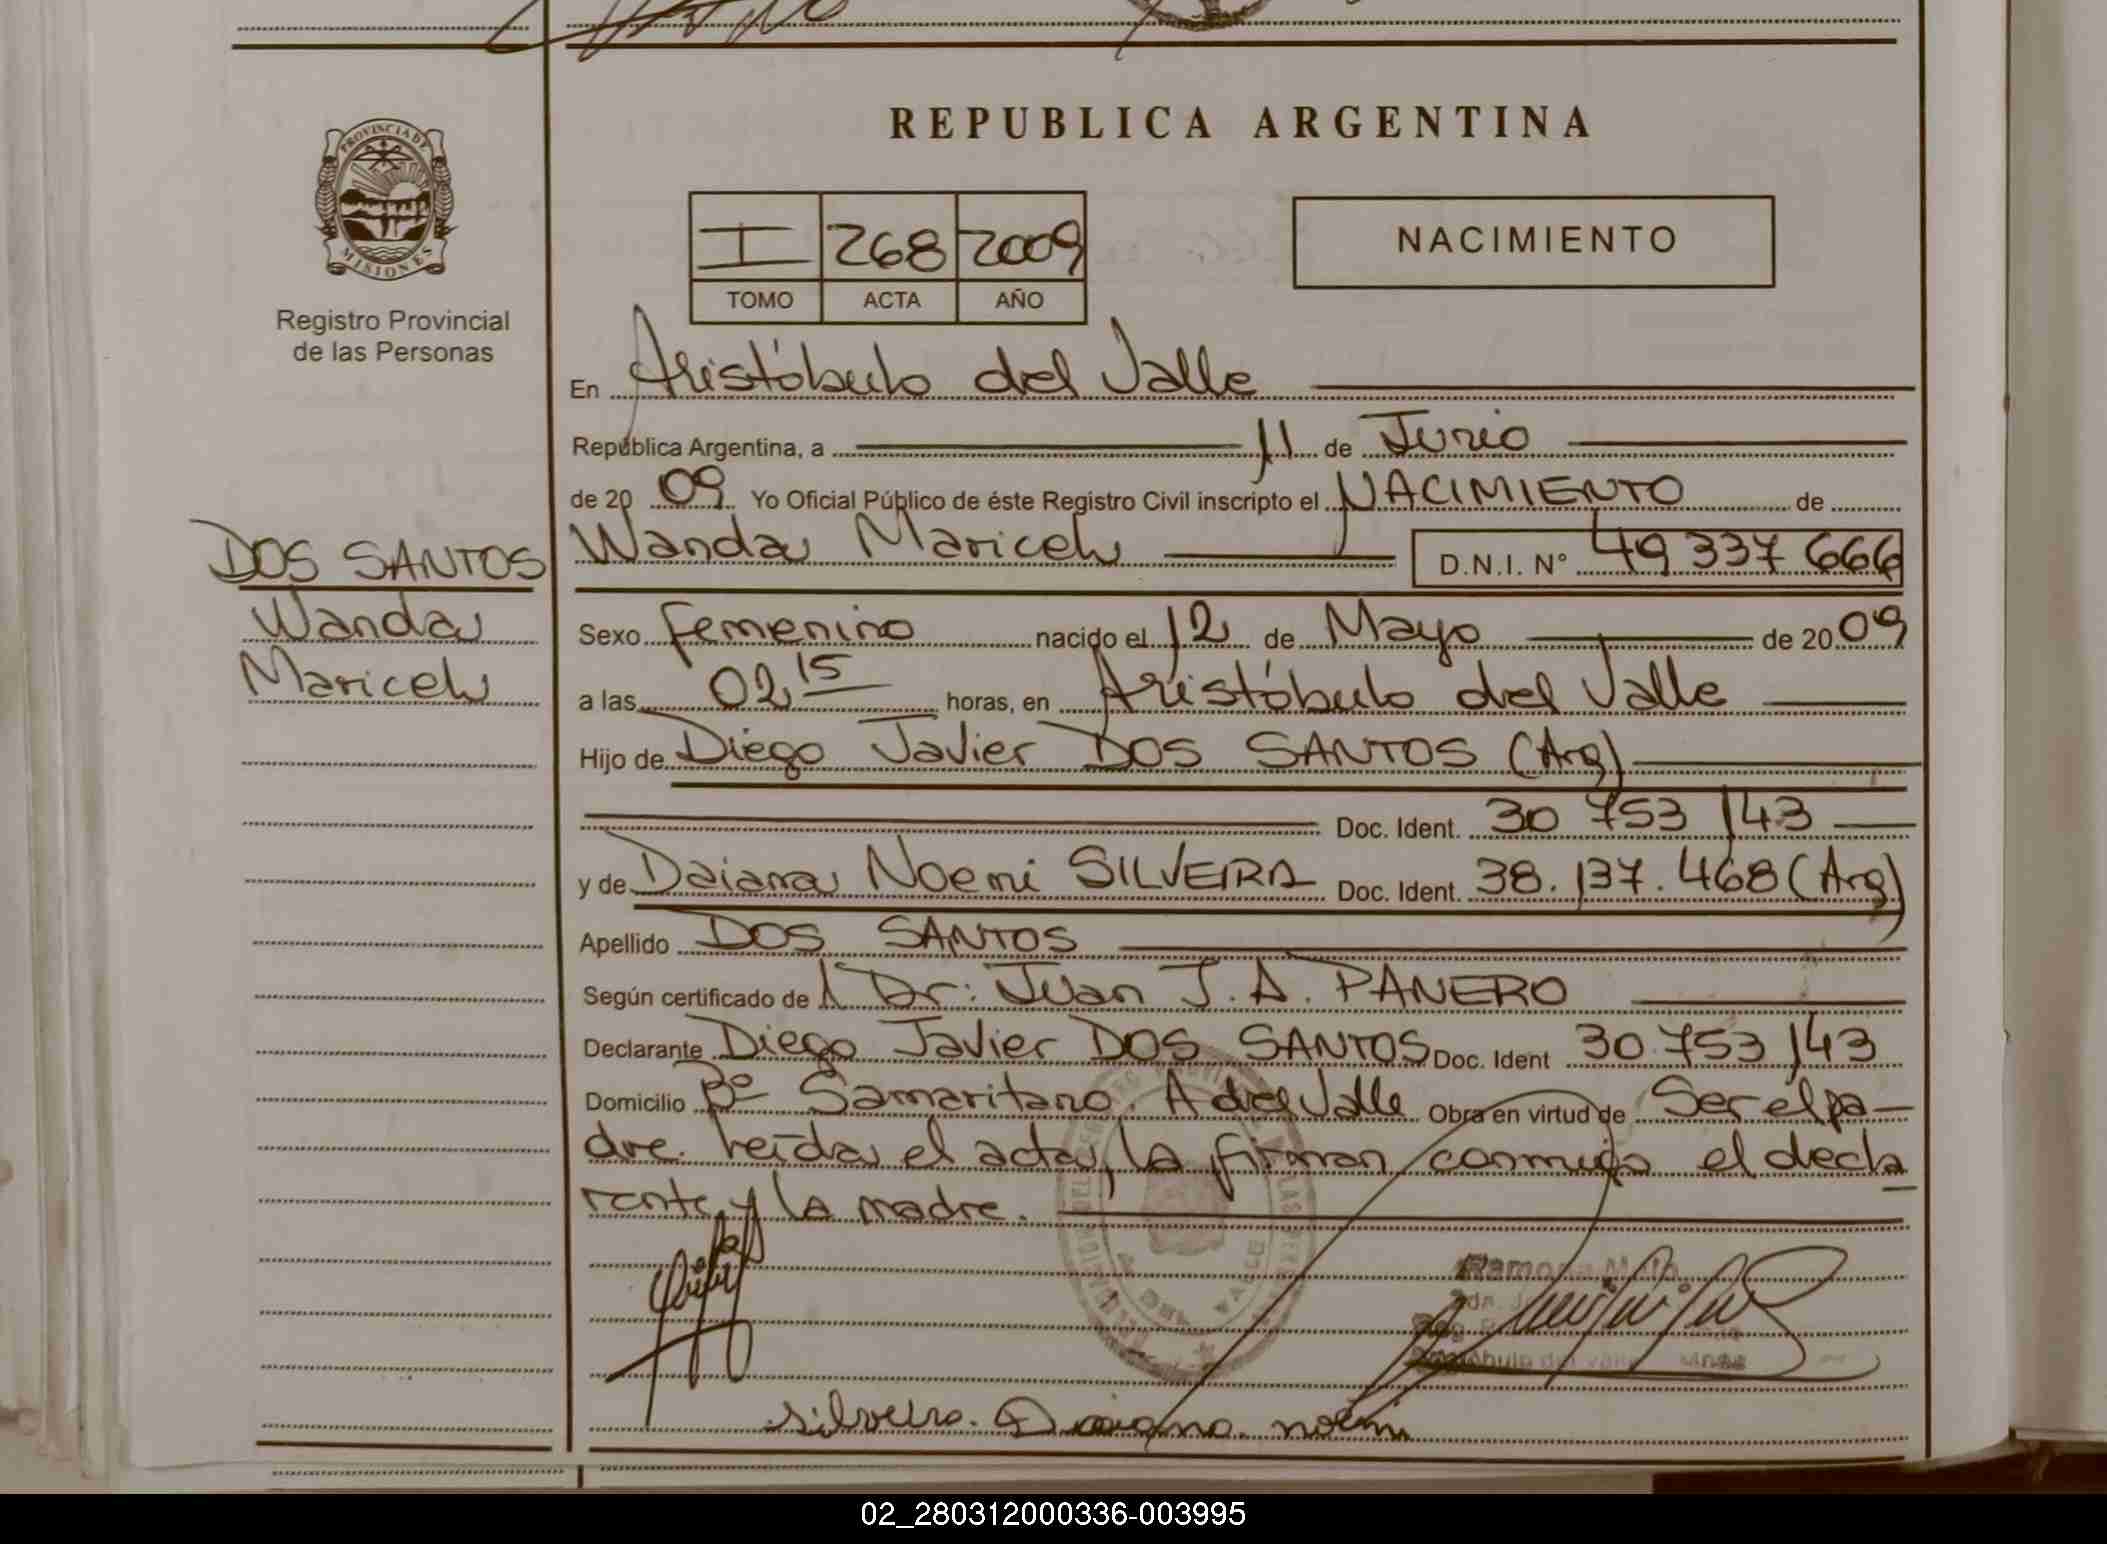 REPUBLICA ARGENTINA
PROVINCIA DE
MISIONES
Registro Provincial
de las Personas
I 268 2009
TOMO ACTA AÑO
NACIMIENTO
En Aristóbulo del Valle
República Argentina, a 11 de Junio
de 20 09 Yo Oficial Público de éste Registro Civil inscripto el NACIMIENTO de
DOS SANTOS
Wanda
Maricel
Wanda Maricel D.N.I. N° 49 337 666
Sexo Femenino nacido el 12 de Mayo de 20 09
a las 02 15 horas, en Aristóbulo del Valle
Hijo de Diego Javier DOS SANTOS (Arg)
Doc. Ident. 30 753 143
y de Daiana Noemi SILVEIRA Doc. Ident. 38.137.468 (Arg)
Apellido DOS SANTOS
Según certificado de Dr: Juan J. A. PANERO
Declarante Diego Javier DOS SANTOS Doc. Ident 30.753 143
Domicilio B° Samaritano. A del Valle Obra en virtud de Ser el pa-
dre. Leída el acta, la firman conmigo el decla
rante y la madre.
Silveira. Daiana. noemi
02_280312000336-003995